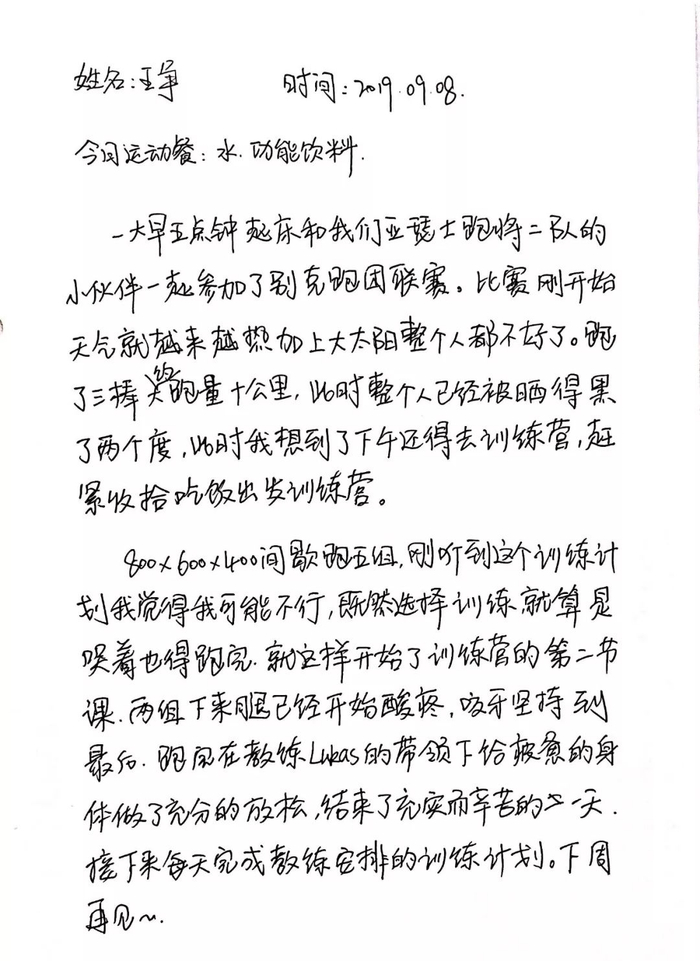 姓名:王争 时间:2019.09.08.
今日运动餐:水.功能饮料.
一大早五点钟起床和我们亚瑟士跑将二队的
小伙伴一起参加了别克跑团联赛。比赛刚开始
天气就越来越热加上大太阳整个人都不好了。跑
了三棒总跑量十公里,此时整个人已经被晒得黑
了两个度,此时我想到了下午还得去训练营,赶
紧收拾吃饭出发训练营。
800×600×400间歇跑五组,刚听到这个训练计
划我觉得我可能不行,既然选择训练就算是
哭着也得跑完.就这样开始了训练营的第二节
课.两组下来腿已经开始酸疼,咬牙坚持到
最后.跑完在教练Lukas的带领下给疲惫的身
体做了充分的放松,结束了充实而辛苦的一天.
接下来每天完成教练安排的训练计划。下周
再见~.